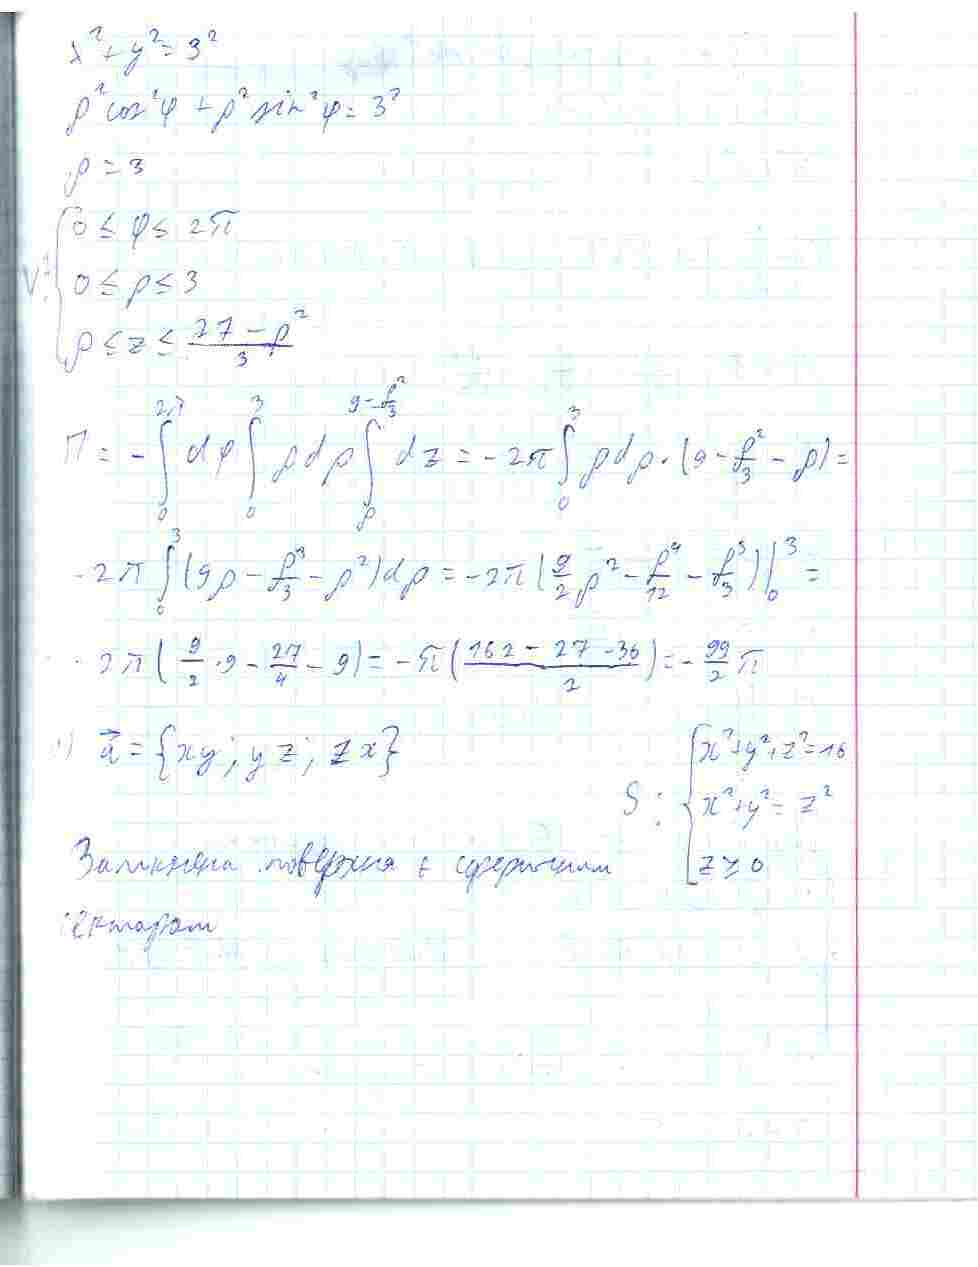 x² + y² = 3²
ρ² cos² φ + ρ² sin² φ = 3²
ρ = 3
V: { 0 ≤ φ ≤ 2π
0 ≤ ρ ≤ 3
ρ ≤ z ≤ (27 - ρ²)/3
П = - ∫₀^{2π} dφ ∫₀^3 ρdρ ∫_ρ^{9-ρ²/3} dz = - 2π ∫₀^3 ρdρ · (9 - ρ²/3 - ρ) =
-2π ∫₀^3 (9ρ - ρ³/3 - ρ²)dρ = -2π (9/2 ρ² - ρ⁴/12 - ρ³/3)|₀^3 =
-2π (9/2 · 9 - 27/4 - 9) = -π((162 - 27 - 36)/2) = - 99/2 π
) a⃗ = {xy; yz; zx} S: { x² + y² + z² = 16
x² + y² = z²
z ≥ 0
Замкнена поверхня є сферичним
сектором